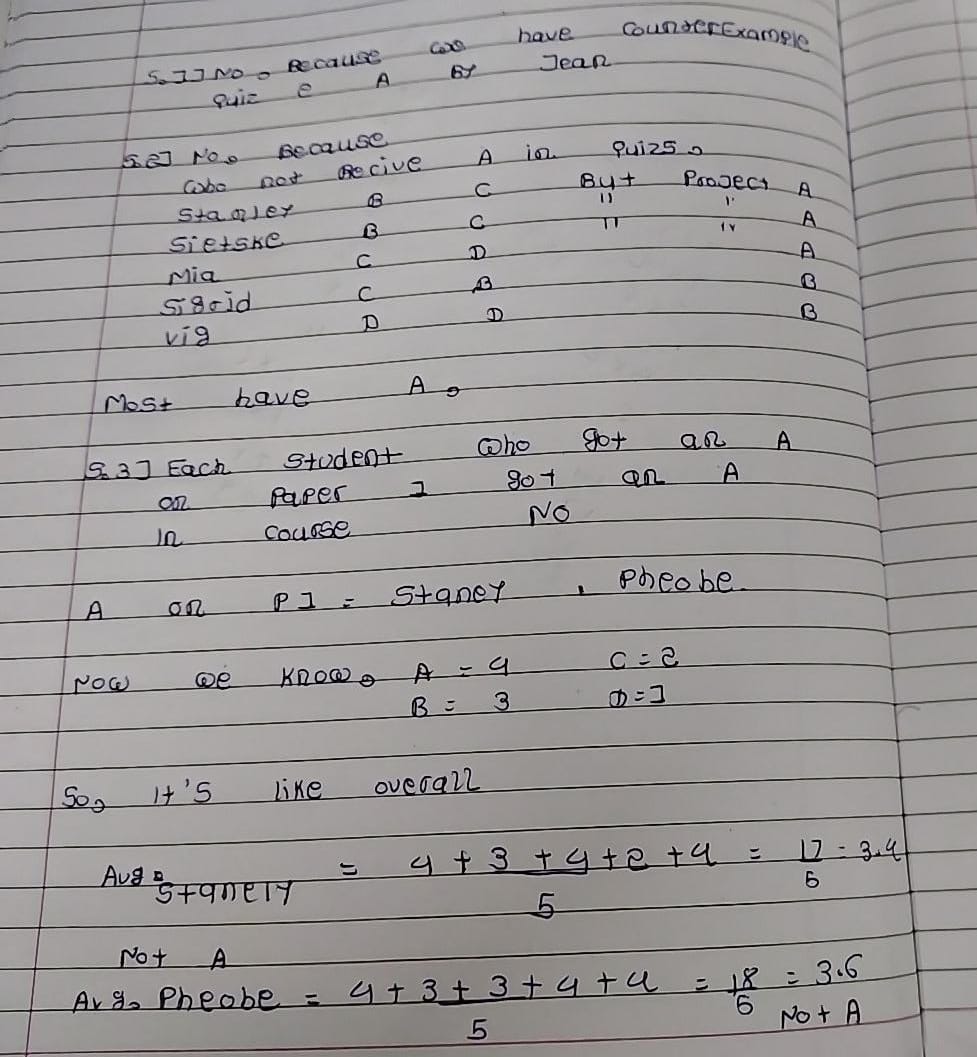 5.1] No, Because we have CounterExample
Quiz 2 A By Jean
5.2] No, Because
who not Recive A in Quizs,
Stanley B C But Project A
Sietske B C " " A
Mia C D " " A
Sigrid C B B
vig D D B
Most have A,
5.3] Each student who got an A
on Paper 1 got an A
in course NO
A on P1 = Staney , Pheobe
Now we know, A = 4 C = 2
B = 3 D = 1
So, it's like overall
Avg. Stanely = 4 + 3 + 4 + 2 + 4 / 5 = 17 / 5 = 3.4
Not A
Avg. Pheobe = 4 + 3 + 3 + 4 + 4 / 5 = 18 / 5 = 3.6
Not A